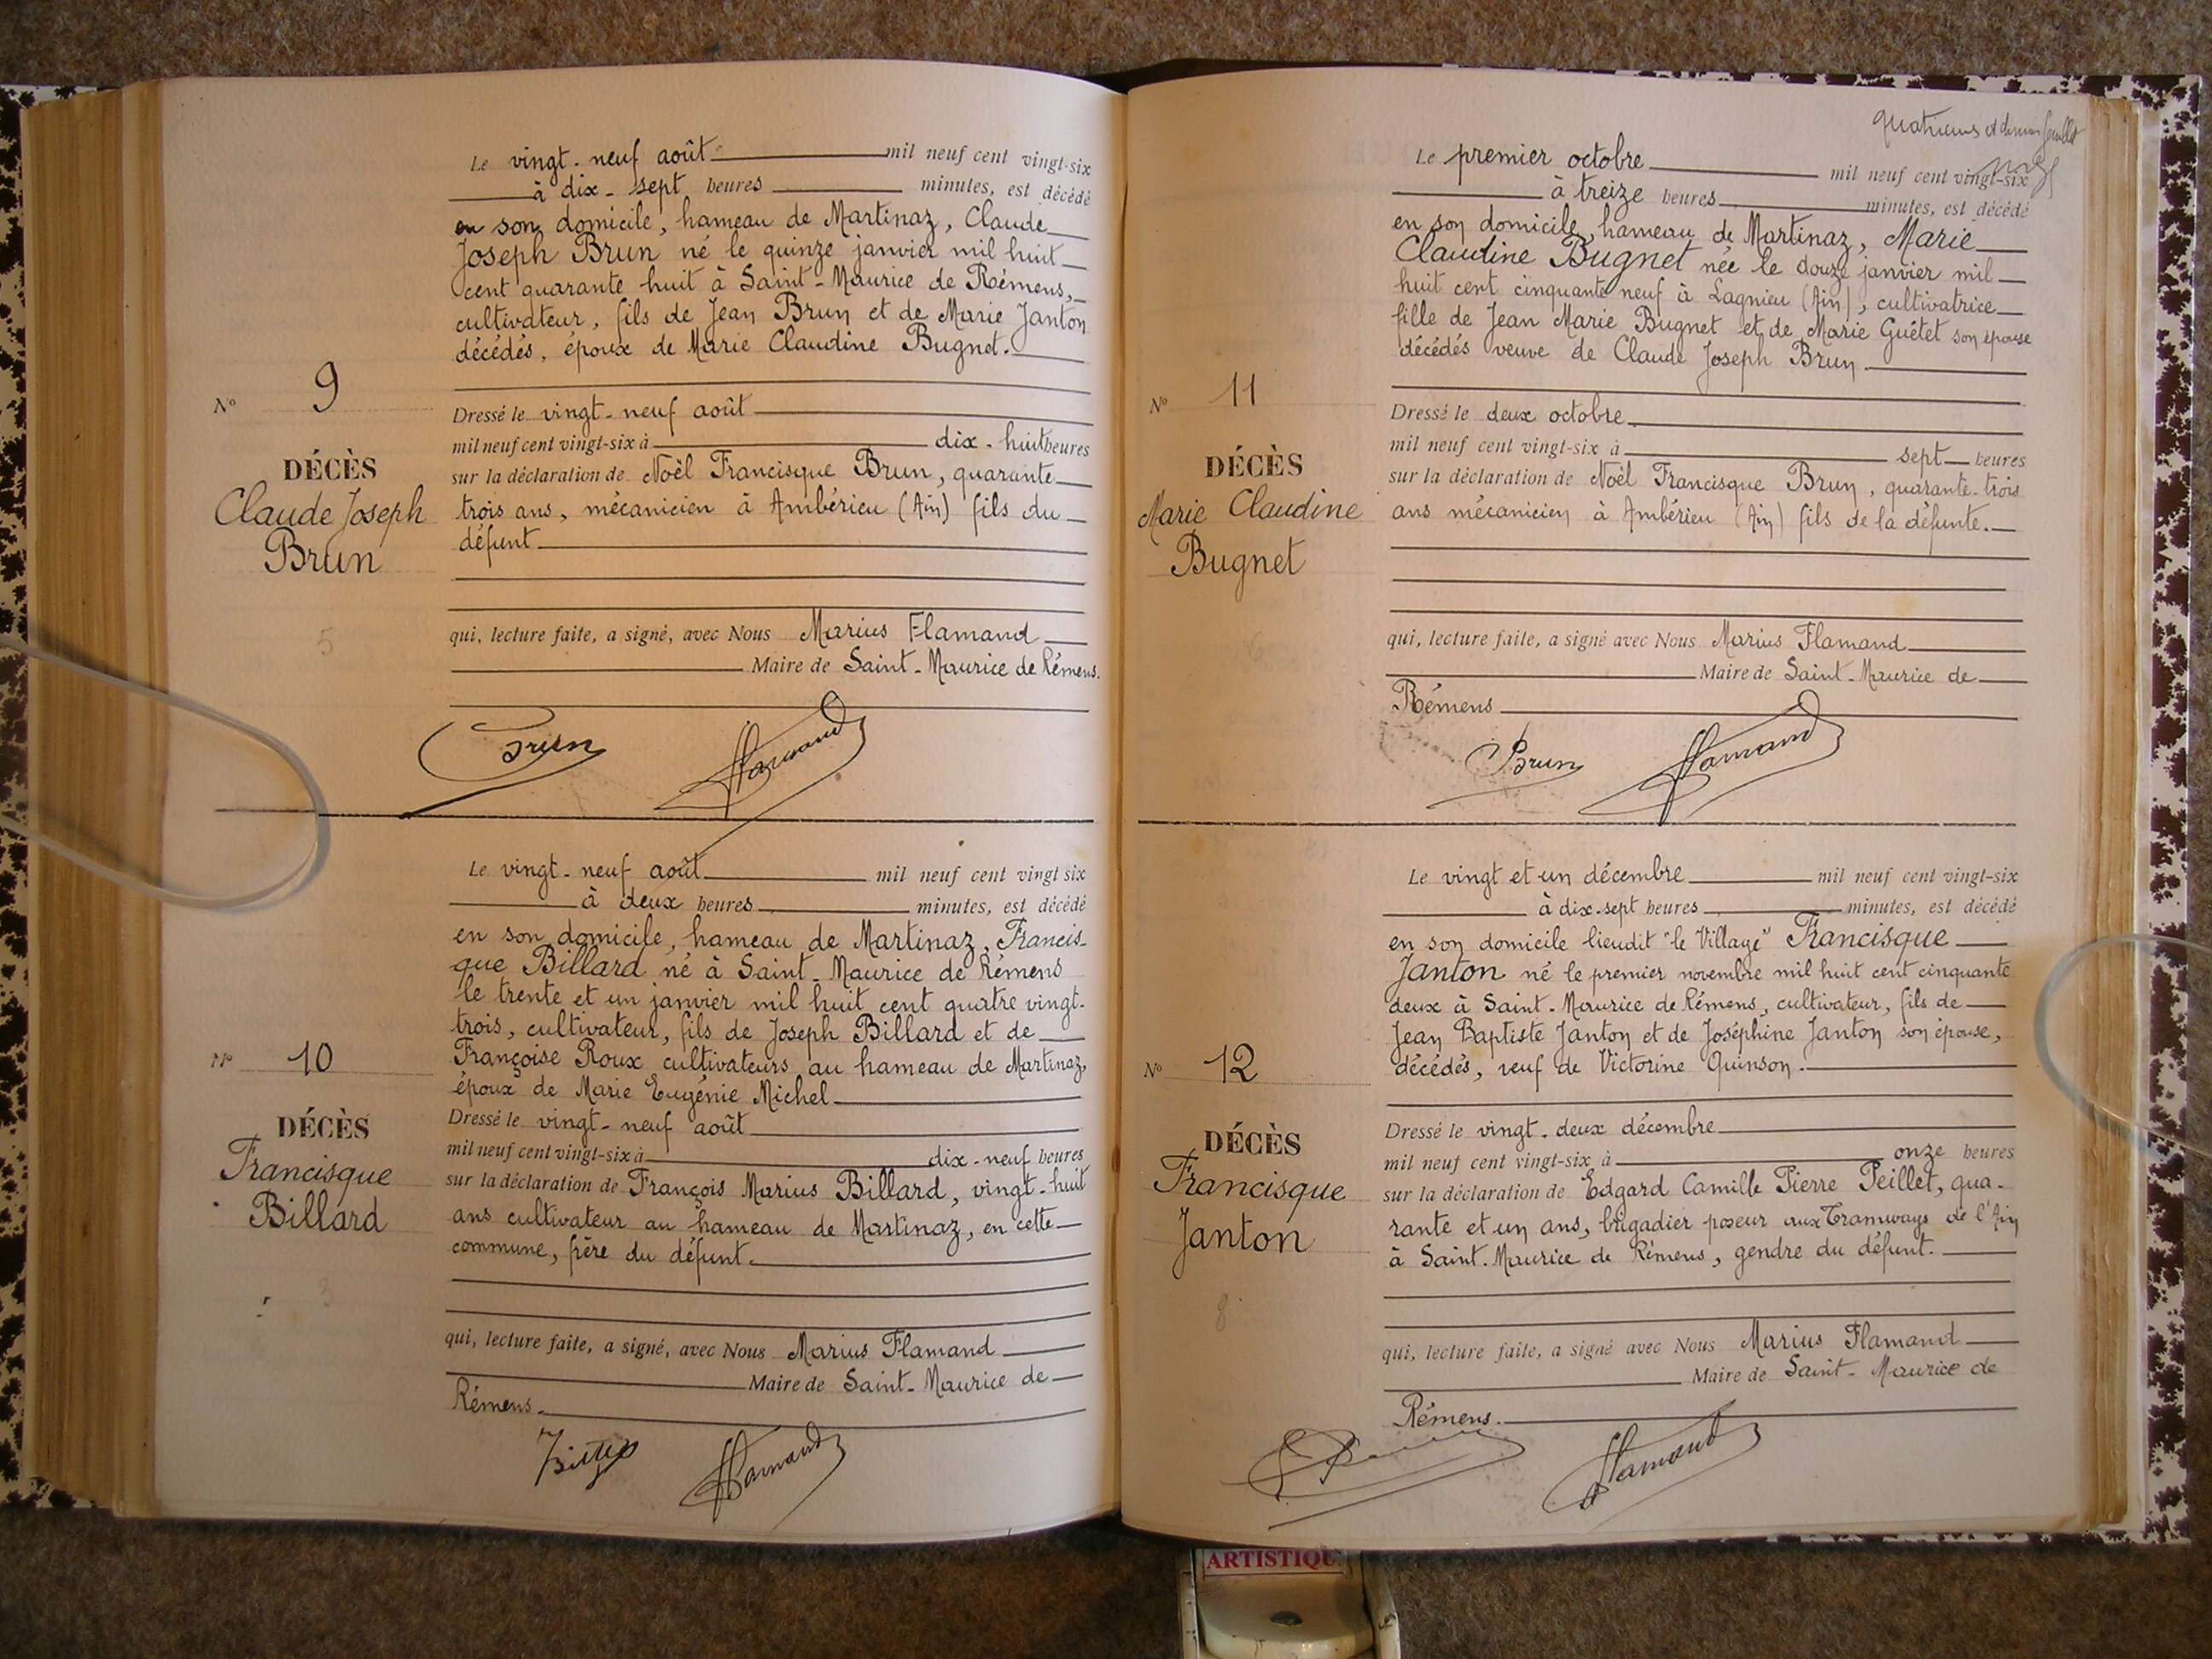 Le vingt-neuf août mil neuf cent vingt-six
à dix-sept heures minutes, est décédé
en son domicile, hameau de Martinaz, Claude
Joseph Brun né le quinze janvier mil huit
cent quarante huit à Saint-Maurice de Rémens,
cultivateur, fils de Jean Brun et de Marie Janton
décédés, époux de Marie Claudine Bugnet.
N° 9
DÉCÈS
Claude Joseph
Brun
Dressé le vingt-neuf août
mil neuf cent vingt-six à dix-huit heures
sur la déclaration de Noël Francisque Brun, quarante
trois ans, mécanicien à Ambérieu (Ain) fils du
défunt
5
qui, lecture faite, a signé, avec Nous Marius Flamand
Maire de Saint-Maurice de Rémens.
Brun Flamand
Le vingt-neuf août mil neuf cent vingt six
à deux heures minutes, est décédé
en son domicile, hameau de Martinaz, Francis-
que Billard né à Saint-Maurice de Rémens
le trente et un janvier mil huit cent quatre vingt-
trois, cultivateur, fils de Joseph Billard et de
Françoise Roux cultivateurs au hameau de Martinaz,
époux de Marie Eugénie Michel
N° 10
DÉCÈS
Francisque
Billard
Dressé le vingt-neuf août
mil neuf cent vingt-six à dix-neuf heures
sur la déclaration de François Marius Billard, vingt-huit
ans cultivateur au hameau de Martinaz, en cette
commune, frère du défunt.
3
qui, lecture faite, a signé, avec Nous Marius Flamand
Maire de Saint-Maurice de
Rémens.
Flamand
quatrième et dernier feuillet
Le premier octobre mil neuf cent vingt-six
à treize heures minutes, est décédé
en son domicile, hameau de Martinaz, Marie
Claudine Bugnet née le douze janvier mil
huit cent cinquante neuf à Lagnieu (Ain), cultivatrice
fille de Jean Marie Bugnet et de Marie Guétet son épouse
décédés veuve de Claude Joseph Brun
N° 11
DÉCÈS
Marie Claudine
Bugnet
Dressé le deux octobre
mil neuf cent vingt-six à sept heures
sur la déclaration de Noël Francisque Brun, quarante-trois
ans mécanicien à Ambérieu (Ain) fils de la défunte.
6
qui, lecture faite, a signé avec Nous Marius Flamand
Maire de Saint-Maurice de
Rémens
Brun Flamand
Le vingt et un décembre mil neuf cent vingt-six
à dix-sept heures minutes, est décédé
en son domicile lieudit "le Village" Francisque
Janton né le premier novembre mil huit cent cinquante
deux à Saint-Maurice de Rémens, cultivateur, fils de
Jean Baptiste Janton et de Joséphine Janton son épouse,
décédés, veuf de Victorine Quinson.
N° 12
DÉCÈS
Francisque
Janton
Dressé le vingt-deux décembre
mil neuf cent vingt-six à onze heures
sur la déclaration de Edgard Camille Pierre Peillet, qua-
rante et un ans, brigadier poseur aux Tramways de l'Ain
à Saint-Maurice de Rémens, gendre du défunt.
8
qui, lecture faite, a signé avec Nous Marius Flamand
Maire de Saint-Maurice de
Rémens.
Flamand
ARTISTIQU